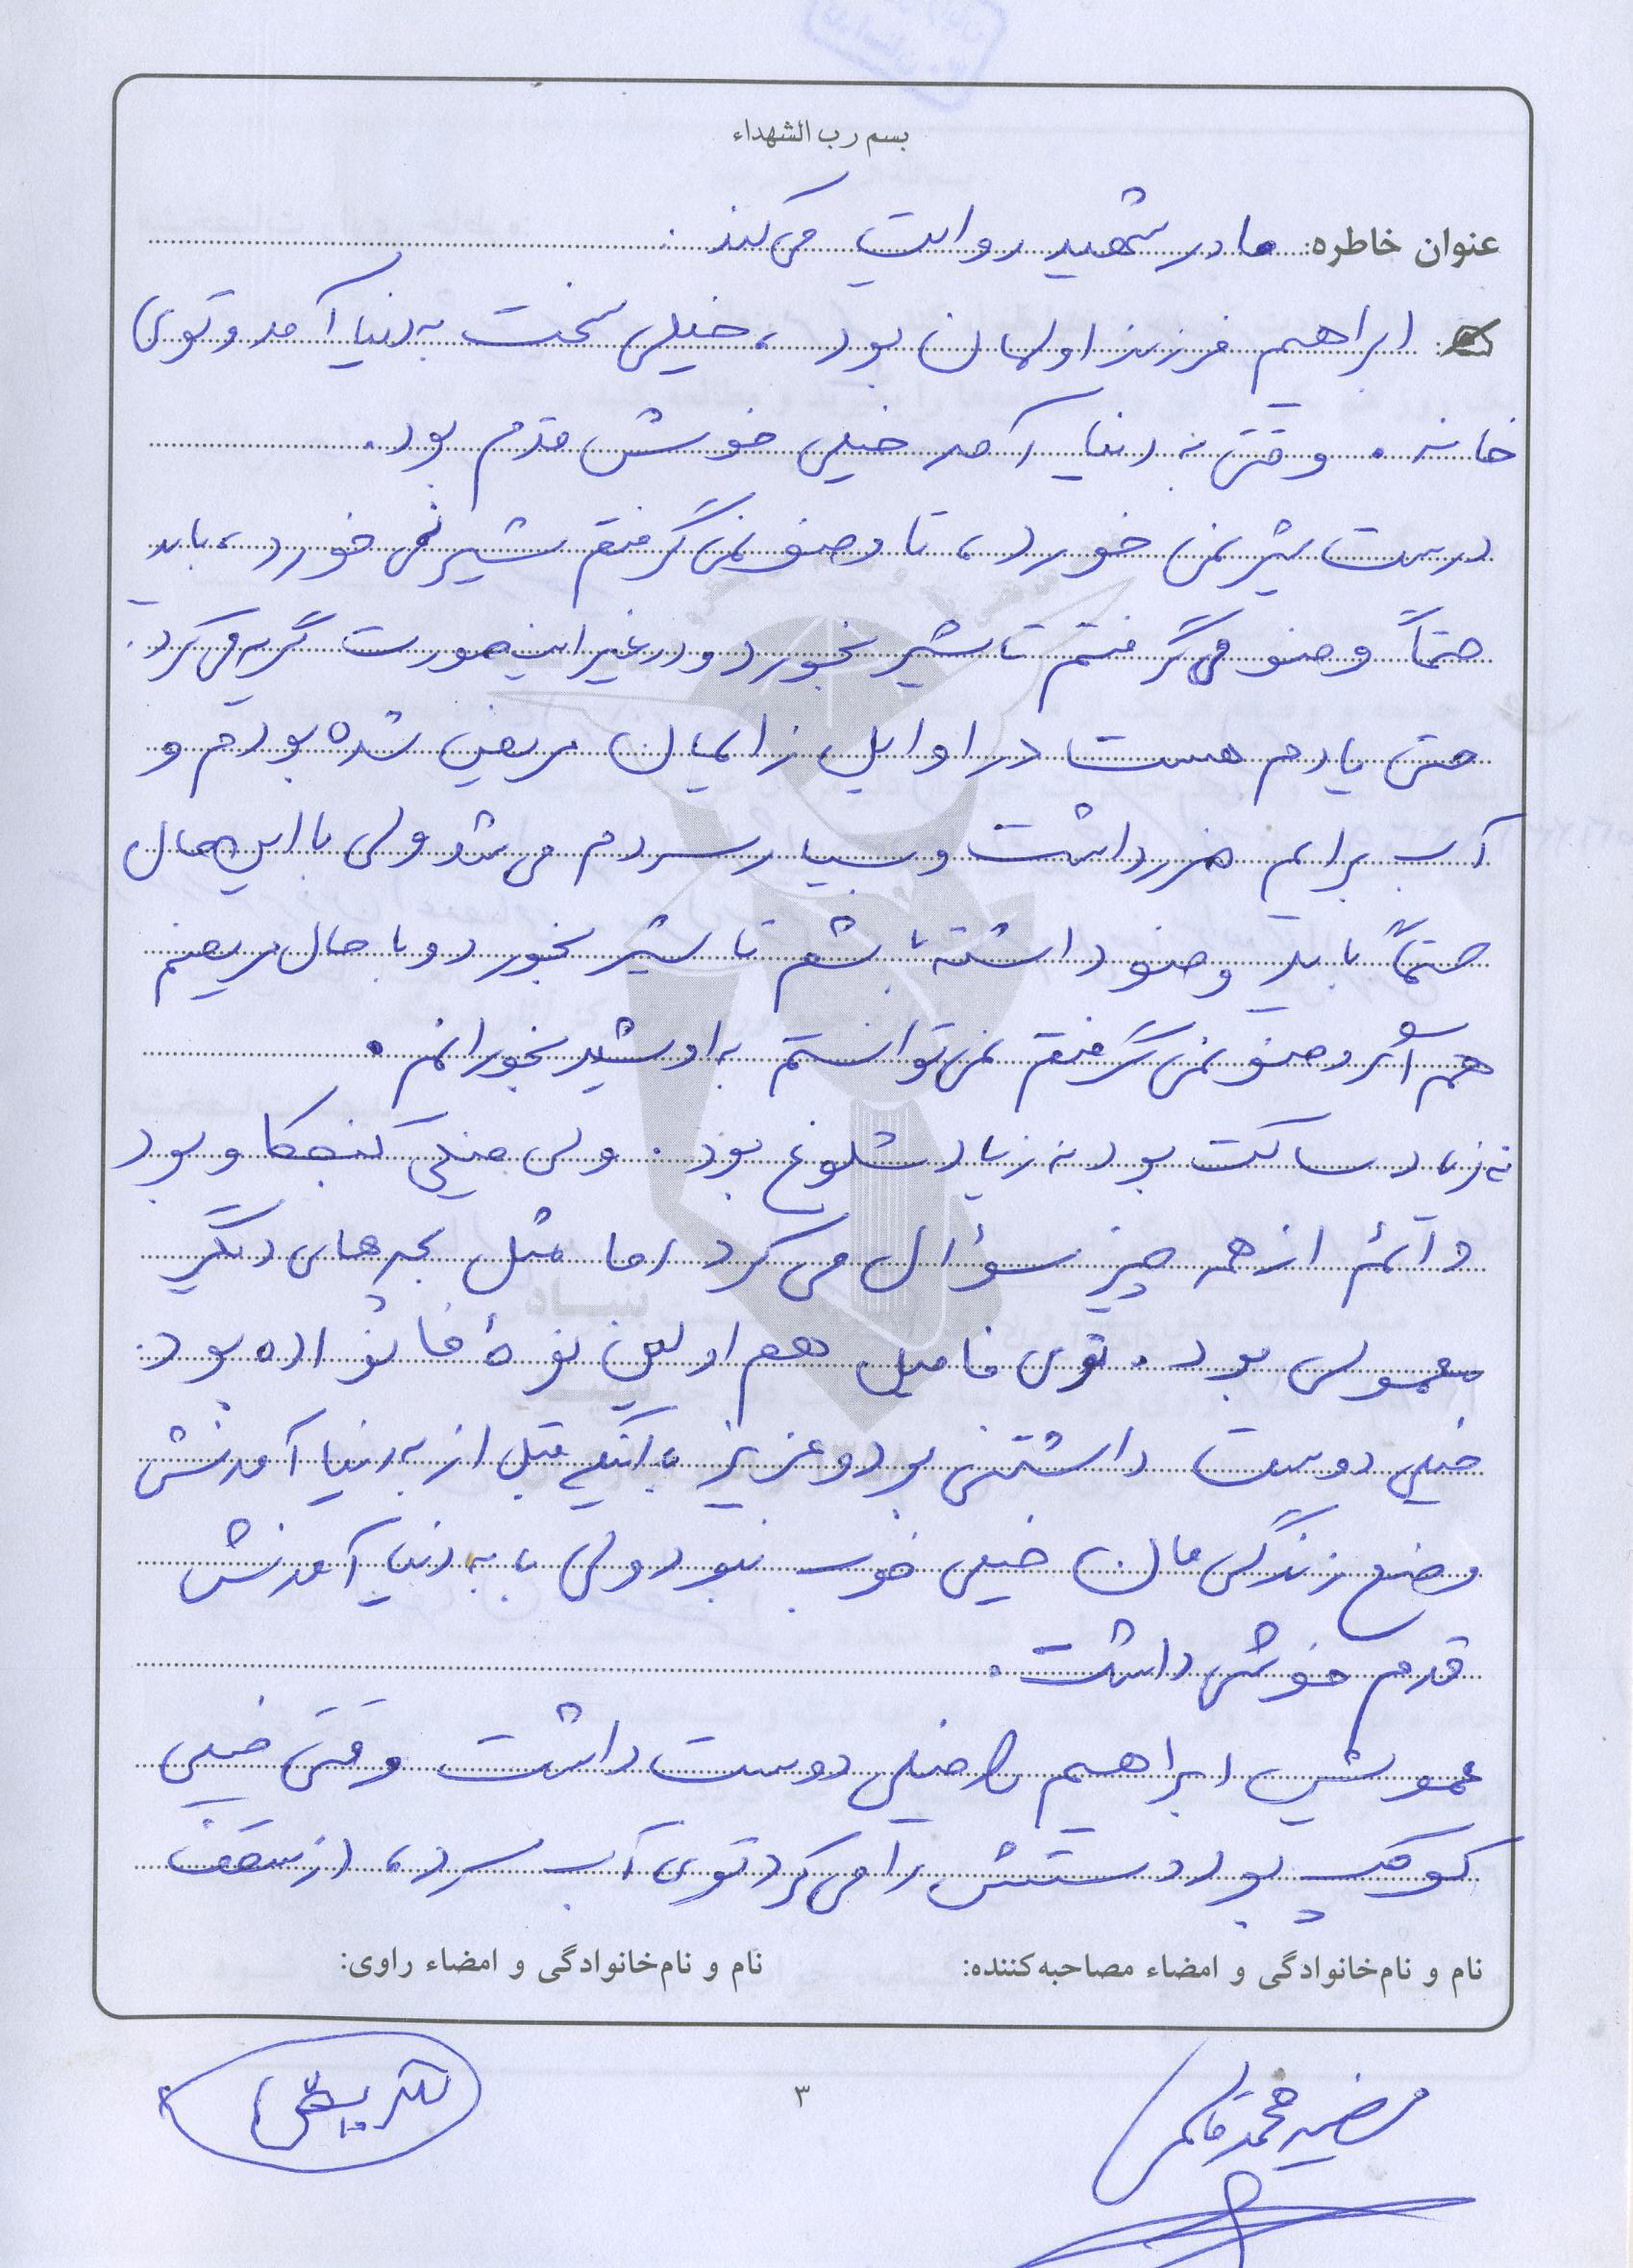 بسم رب الشهداء
عنوان خاطره: مادر شهید روایت می‌کند.
ابراهیم فرزند اولمان بود، خیلی سخت به دنیا آمد و توی
خانه. وقتی به دنیا آمد خیلی خوش قدم بود.
درست شیر نمی خورد، تا وضو نمی گرفتم شیر نمی خورد، باید
حتماً وضو می گرفتم تا شیر بخورد و در غیر اینصورت گریه می کرد.
حتی یادم هست در اوایل زایمان مریض شده بودم و
آب برایم ضرر داشت و بسیار سردم می شد ولی با این حال
حتماً باید وضو داشته باشم تا شیر بخورد و با حال مریضم
هم اگر وضو نمی گرفتم نمی توانستم به او شیر بخورانم.
نه زیاد ساکت بود نه زیاد شلوغ بود. ولی خیلی کنجکاو بود
دائم از همه چیز سؤال می کرد اما مثل بچه های دیگر
معمولی بود. توی فامیل هم اولین نوهٔ خانواده بود.
خیلی دوست داشتنی بود و عزیز، با اینکه قبل از به دنیا آمدنش
وضع زندگی مان خیلی خوب نبود ولی با به دنیا آمدنش
قدم خوشی داشت.
عمویش ابراهیم را خیلی دوست داشت وقتی خیلی
کوچک بود دستش را می کرد توی آب سرد، از سقف
نام و نام‌خانوادگی و امضاء مصاحبه‌کننده:
نام و نام‌خانوادگی و امضاء راوی:
مرضیه محمد
۳